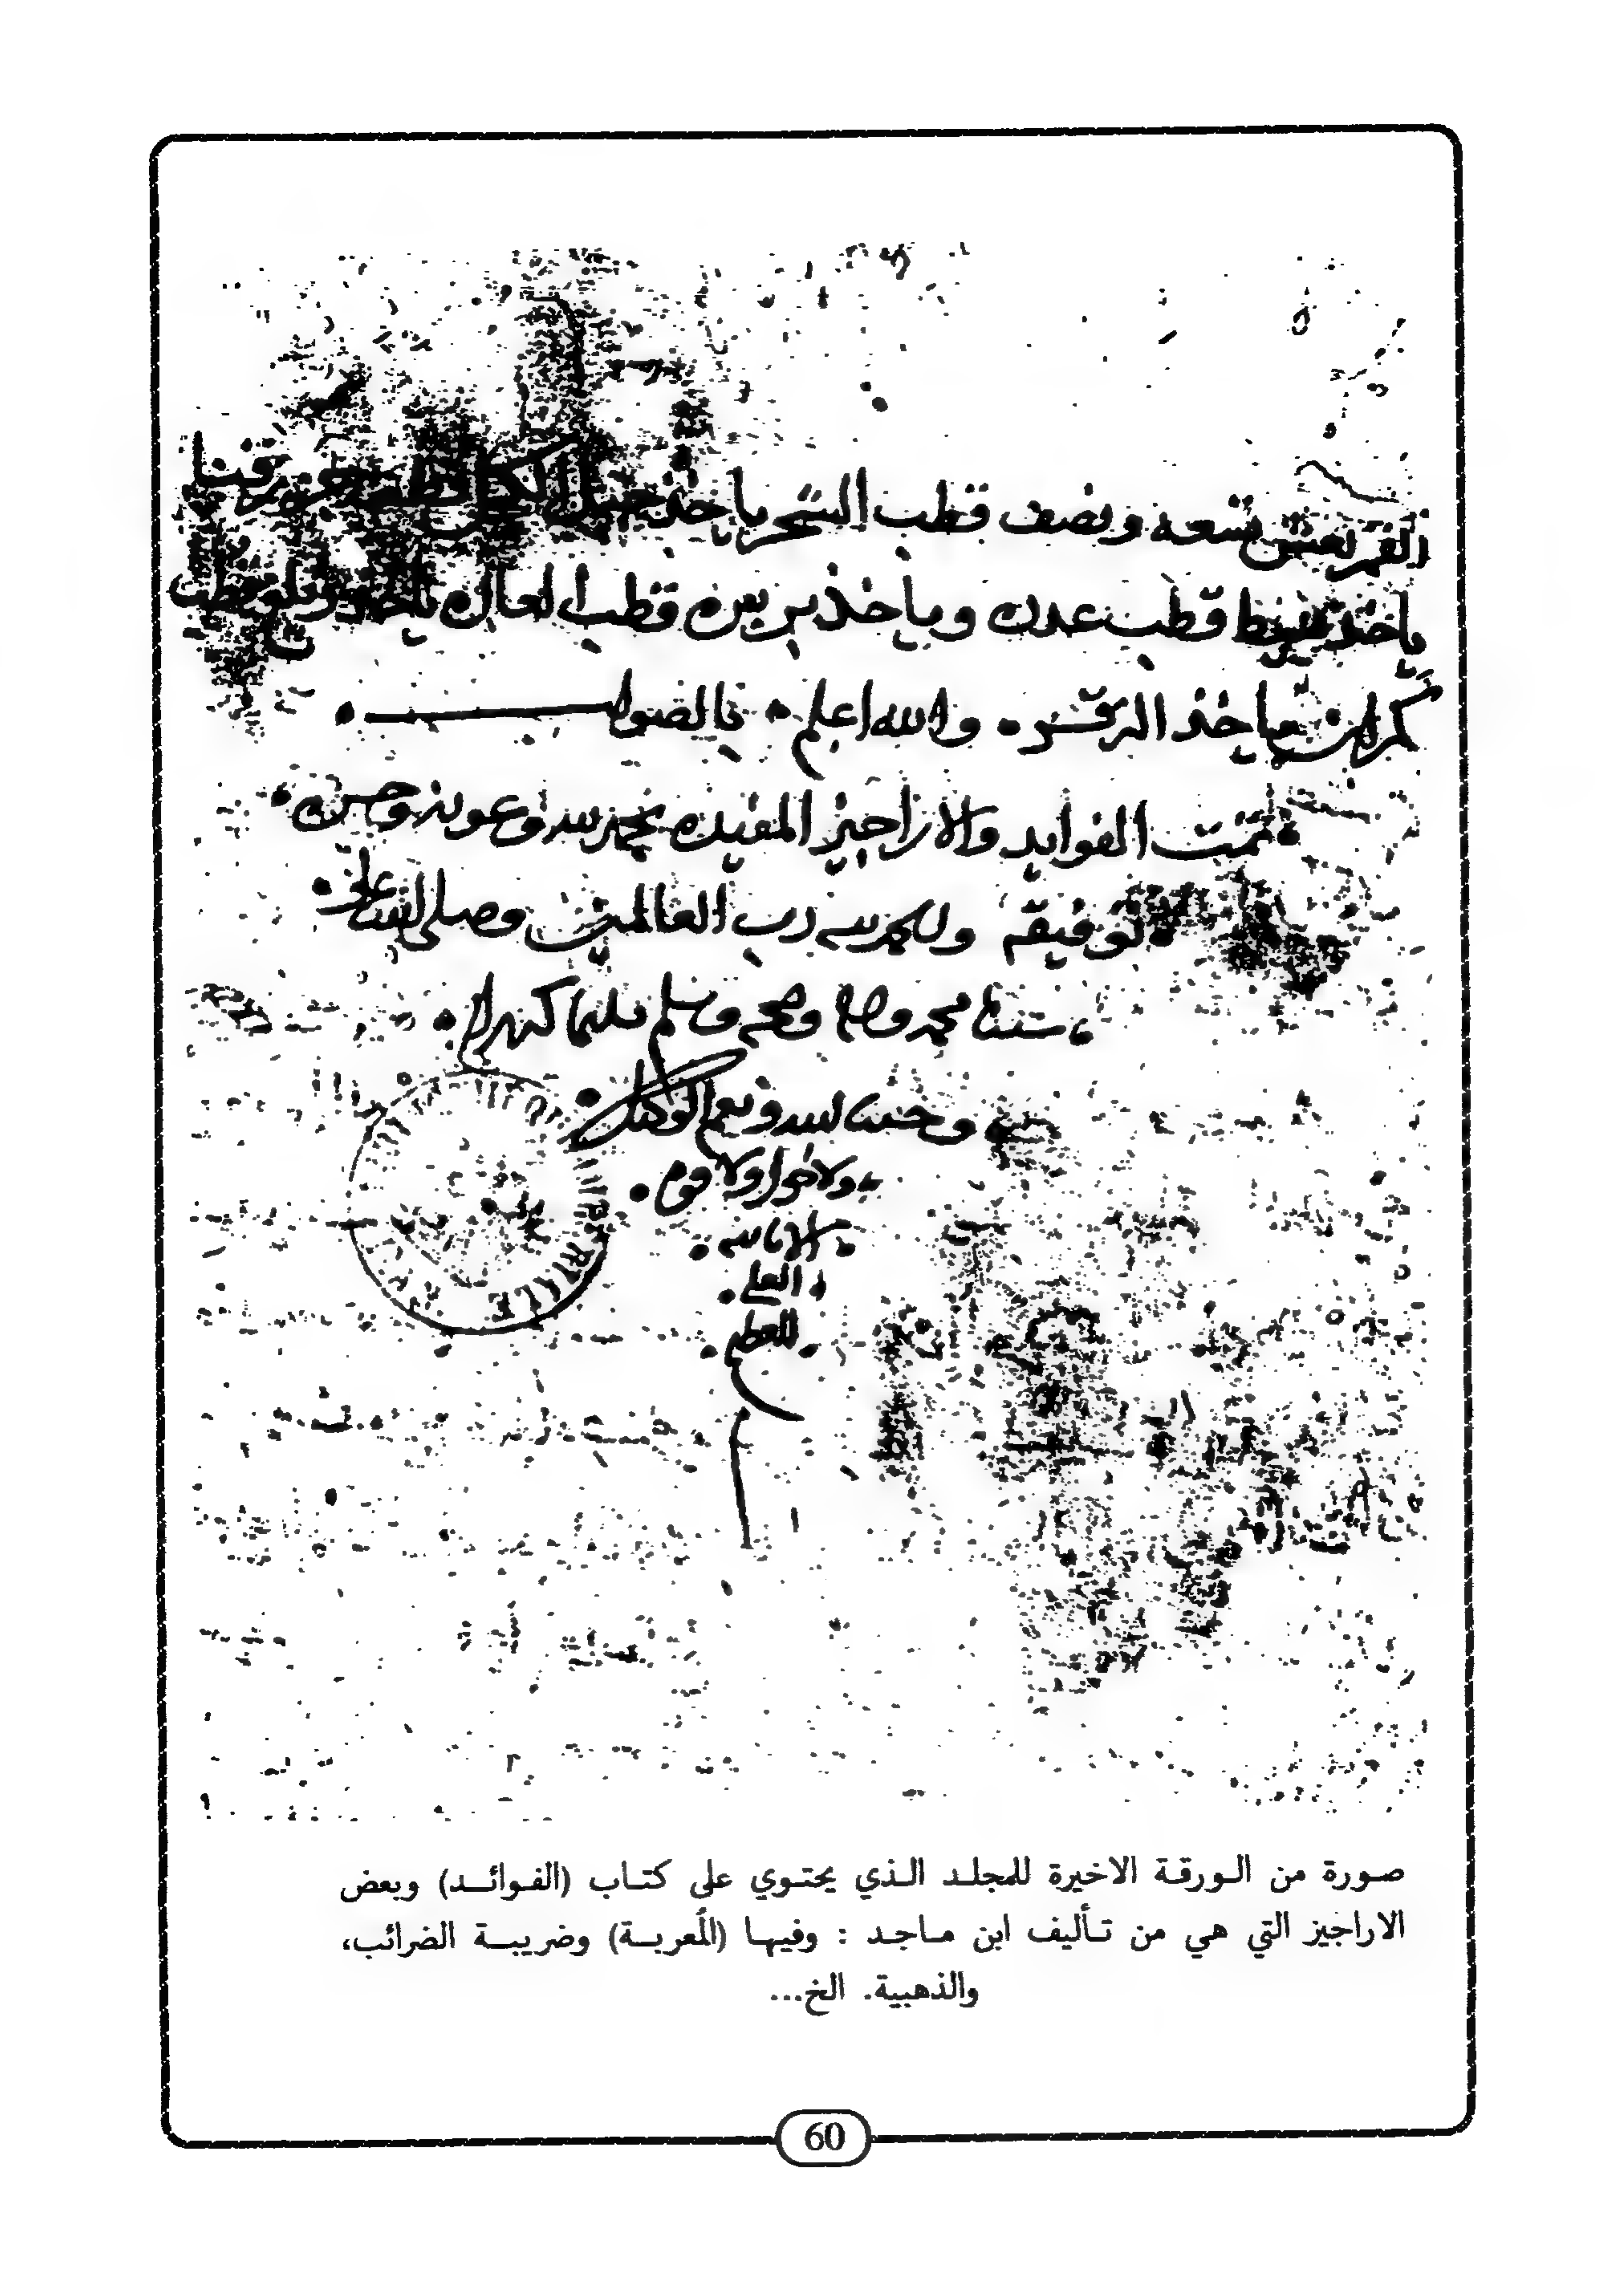 تسعه ونصف قطب الشحر ياخذ جبل الكحل
ياخذ قطب عدن وياخذ بربره قطب العاره
كمران ياخذ الدقر والله اعلم بالصواب
تمت الفوايد والاراجيز المفيده بحمد الله وعونه وحسن
توفيقه والحمد لله رب العالمين وصلى الله على
سيدنا محمد واله وصحبه وسلم تسليما كثيرا
وحسبنا الله ونعم الوكيل
ولا حول ولا قوه
الا بالله
العلي
العظيم
صورة من الورقة الاخيرة للمجلد الذي يحتوي على كتاب (الفوائد) وبعض
الاراجيز التي هي من تأليف ابن ماجد : وفيها (المُعربة) وضريبة الضرائب،
والذهبية. الخ...
60